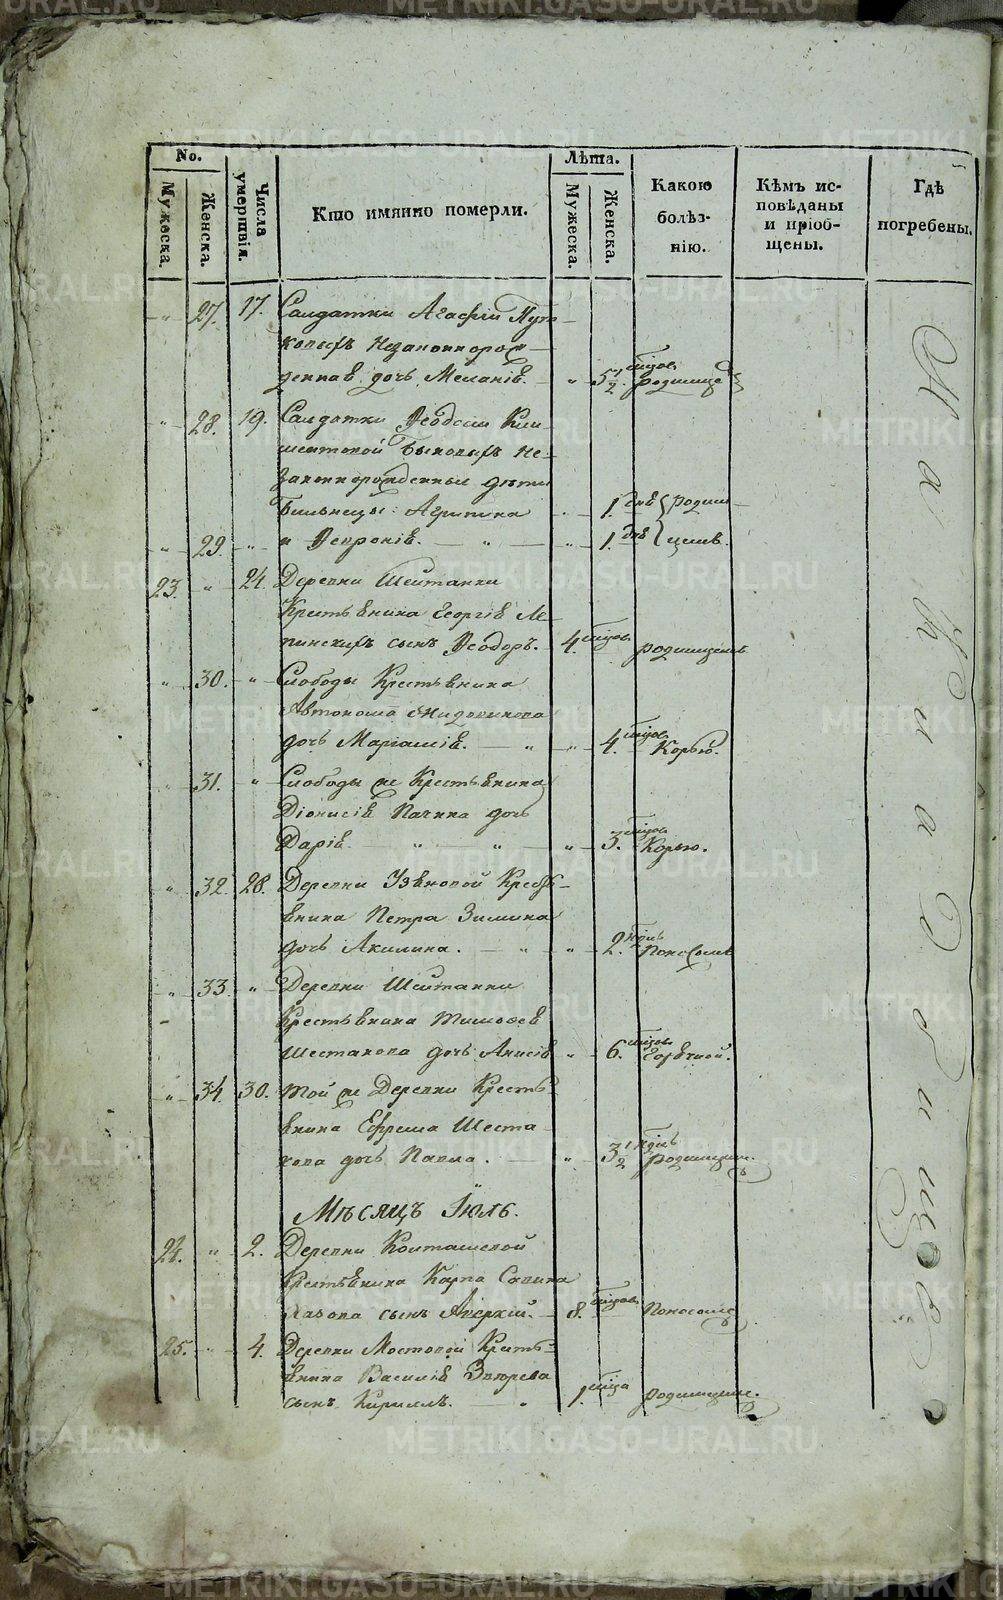 No.
Мужеска.
Женска.
Числа умершвія.
Кто имянно померли.
Лѣта.
Мужеска.
Женска.
Какою болѣз-нію.
Кѣмъ ис-повѣданы и пріоб-щены.
Гдѣ погребены.
27. 17. Салдатки Агафіи
незаконнорож-
денная дочь Меланія. 5 1/2 мцов родимце
28. 19. Салдатки Ѳеодосіи Кли-
ментовой Быковыхъ не-
законнорожденныя дѣти
близнецы: Агрипина 1. дня родим-
29. и Ѳевронія. 1. дня цемъ.
23. 24. Деревни Шейтанки
Крестьянина Георгія Ле-
пинскихъ сынъ Ѳеодоръ. 4. мцов родимцемъ
30. Слободы Крестьянина
Автонома
дочь Маріамія. 4. мцов Корью.
31. Слободы же Крестьянина
Діонисія Пачина дочь
Дарія. 3. мцов Корью.
32. 28. Деревни Узяновой Кресть-
янина Петра Зимина
дочь Акилина. 2. ндль Поносомъ
33. Деревни Шейтанки
Крестьянина Тимоѳея
Шестакова дочь Анисія 6. мцов Горячкой.
34. 30. Той же Деревни Кресть-
янина Ефрема Шеста-
кова дочь Павла. 3 1/2 ндль родимцем.
Мѣсяцъ Іюль.
24. 2. Деревни Конташевой
Крестьянина Карпа Савина
сынъ Аверкій. 8. мцов Поносомъ
25. 4. Деревни Мостовой Кресть-
янина Василія Звѣрева
сынъ Кириллъ. 1. мца родимцем.
На кладбищѣ
METRIKI.GASO-URAL.RU